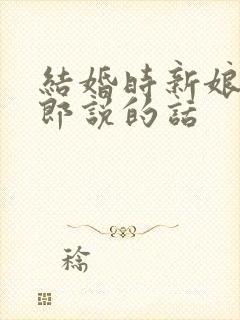 結婚時新娘
郎說的話
稌